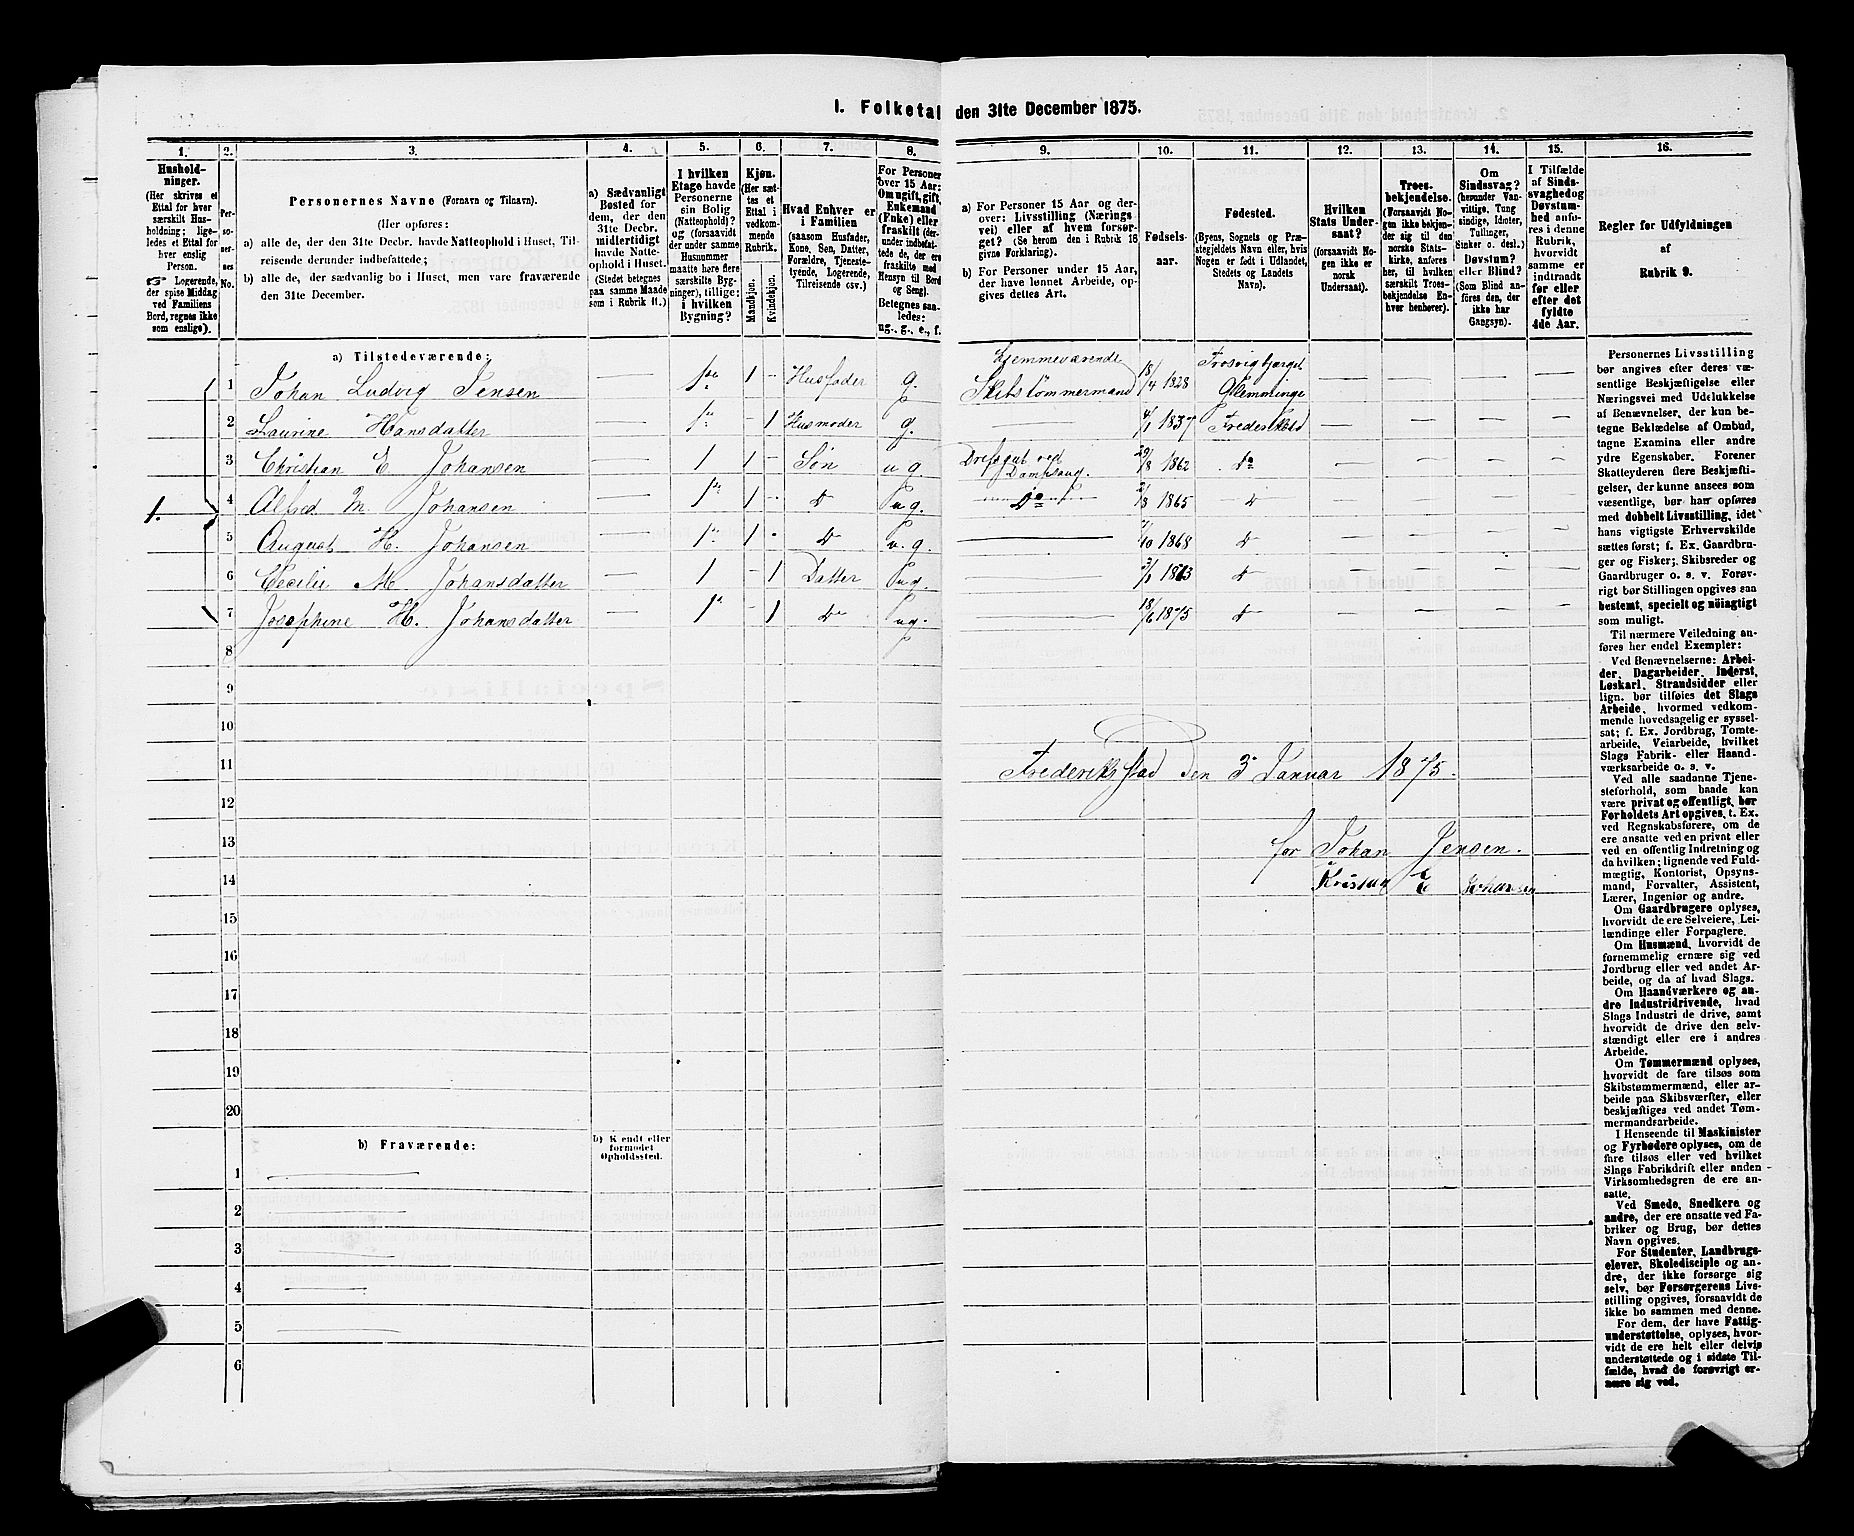 I. Folketal den 31te December 1875.
1. 2. 3. 4. 5. 6. 7. 8. 9. 10. 11. 12. 13. 14. 15. 16.
Husholdninger.
(Her skrives et
Ettal for hver
særskilt Husholdning;
ligeledes et Ettal for
hver enslig
Person.
Logerende,
der spise Middag
ved Familiens
Bord, regnes ikke
som enslige).
Personernes No.
Personernes Navne (Fornavn og Tilnavn).
(Her opføres:
a) alle de, der den 31te Decbr. havde Natteophold i Huset, Tilreisende derunder indbefattede;
b) alle de, der sædvanlig bo i Huset, men vare fraværende
den 31te December.
a) Sædvanligt
Bosted for
dem, der den
31te Decbr.
midlertidigt
havde Natteophold i Huset.
(Stedet betegnes
paa samme Maade
som i Rubrik 11.)
I hvilken
Etage havde
Personerne
sin Bolig
(Natteophold)?
og (forsaavidt
der under samme
Husnummer
maatte høre flere
særskilte Bygninger), tillige:
i hvilken
Bygning?
Kjøn.
(Her sættes et
Ettal i
vedkommende
Rubrik.
Mandkjøn.
Kvindekjøn.
Hvad Enhver er
i Familien
(saasom Husfader,
Kone, Søn, Datter,
Forældre, Tjenestetyende, Logerende,
Tilreisende osv.)
For Personer
over 15 Aar:
Om ugift, gift,
Enkemand
(Enke) eller
fraskilt (derunder indbefattede, de, der ere
fraskilte med
Hensyn til Bord
og Seng).
Betegnes saaledes:
ug., g., e., f.
a) For Personer 15 Aar og derover: Livsstilling (Næringsvei) eller af hvem forsørget? (Se herom den i Rubrik 16
givne Forklaring).
b) For Personer under 15 Aar,
der have lønnet Arbeide, opgives dettes Art.
Fødselsaar.
Fødested.
(Byens, Sognets og Præstegjeldets Navn eller, hvis
Nogen er født i Udlandet,
Stedets og Landets
Navn).
Hvilken
Stats Undersaat?
(forsaavidt Nogen ikke er
norsk
Undersaat).
Troesbekjendelse.
(Forsaavidt Nogen ikke bekjender sig til den
norske Statskirke, anføres
her, til hvilken
særskilt Troesbekjendelse Enhver henhører).
Om
Sindssvag?
(herunder Vanvittige, Tungsindige, Idioter,
Tullinger,
Sinker o. desl.)
Døvstum?
eller Blind?
(Som Blind anføres den, der
ikke har
Gangsyn).
I Tilfælde
af Sindssvaghed og
Døvstumhed anføres i denne
Rubrik,
hvorvidt
samme er
indtraadt
før eller
efter det
fyldte
4de Aar.
Regler for Udfyldningen
af
Rubrik 9.
a) Tilstedeværende:
1. 1 Johan Ludvig Jensen — 1ste 1 - Husfader g. Hjemmeværende Skibstømmermand 18/4 1828 Trosvigbjerget Glemminge — — — —
2 Laurine Hansdatter — 1 - 1 Husmoder g. — 4/1 1837 Frederikstad — — — —
3 Christian E. Johansen — 1 1 Søn ug ved Dampsaug. 29/8 1862 do — — — —
4 Alfred M. Johansen — 1 1 - do ug. do 1865 do — — — —
5 August H. Johansen — 1 1 - do u. g. — /10 1868 do — — — —
6 Cecilie M. Johansdatter — 1 - 1 Datter ug. — 1873 do — — — —
7 Josephine H. Johansdatter — 1 - 1 do ug. — 18/6 1875 do — — — —
8
9
10
11 Frederikstad den 3 Januar 1875.
12
13 for Johan Jensen.
14 Kristian E Johansen
15
16
17
18
19
20
b) Fraværende:
b) Kjendt eller
formodet
Opholdssted.
1
2
3
4
5
6
Personernes Livsstilling
bør angives efter deres væsentlige Beskjæftigelse eller
Næringsvei med Udelukkelse
af Benævnelser, der kun betegne Beklædelse af Ombud,
tagne Examina eller andre
ydre Egenskaber. Forener
Skatteyderen flere Beskjæftigelser, der kunne ansees som
væsentlige, bør han opføres
med dobbelt Livsstilling, idet
hans vigtigste Erhvervskilde
sættes først; f. Ex. Gaardbruger og Fisker; Skibsreder og
Gaardbruger o. s. v. Forøvrigt bør Stillingen opgives saa
bestemt, specielt og nøiagtigt
som muligt.
Til nærmere Veiledning anføres her endel Exempler:
Ved Benævnelserne: Arbeider, Dagarbeider, Inderst,
Løskarl, Strandsidder eller
lign. bør tilføies det Slags
Arbeide, hvormed vedkommende hovedsagelig er sysselsat; f. Ex. Jordbrug, Tomtearbeide, Veiarbeide, hvilket
Slags Fabrik- eller Haandværksarbeide o. s. v.
Ved alle saadanne Tjenesteforhold, som baade kan
være privat og offentligt, bør
Forholdets Art opgives, f. Ex.
ved Regnskabsførere, om de
ere ansatte ved en privat eller
ved en offentlig Indretning og
da hvilken; lignende ved Fuldmægtig, Kontorist, Opsynsmand, Forvalter, Assistent,
Lærer, Ingeniør og andre.
Om Gaardbrugere oplyses,
hvorvidt de ere Selveiere, Leilændinge eller Forpagtere.
Om Husmænd, hvorvidt de
fornemmelig ernære sig ved
Jordbrug eller ved andet Arbeide, og da af hvad Slags.
Om Haandværkere og andre Industridrivende, hvad
Slags Industri de drive, samt
hvorvidt de drive den selvstændigt eller ere i andres
Arbeide.
Om Tømmermænd oplyses,
hvorvidt de fare tilsøs som
Skibstømmermænd, eller arbeide paa Skibsværfter, eller
beskjæftiges ved andet Tømmermandsarbeide.
I Henseende til Maskinister
og Fyrbødere oplyses, om de
fare tilsøs eller ved hvilket
Slags Fabrikdrift eller anden
Virksomhedsgren de ere ansatte.
Ved Smede, Snedkere og
andre, der ere ansatte ved Fabriker og Brug, bør dettes
Navn opgives.
For Studenter, Landbrugselever, Skoledisciple og andre, der ikke forsørge sig
selv, bør Forsørgerens Livsstilling opgives, forsaavidt de
ikke bo sammen med denne.
For dem, der have Fattigunderstøttelse, oplyses, hvorvidt de ere helt eller delvis
understøttede og i sidste Tilfælde, hvad de forøvrigt ernære sig ved.